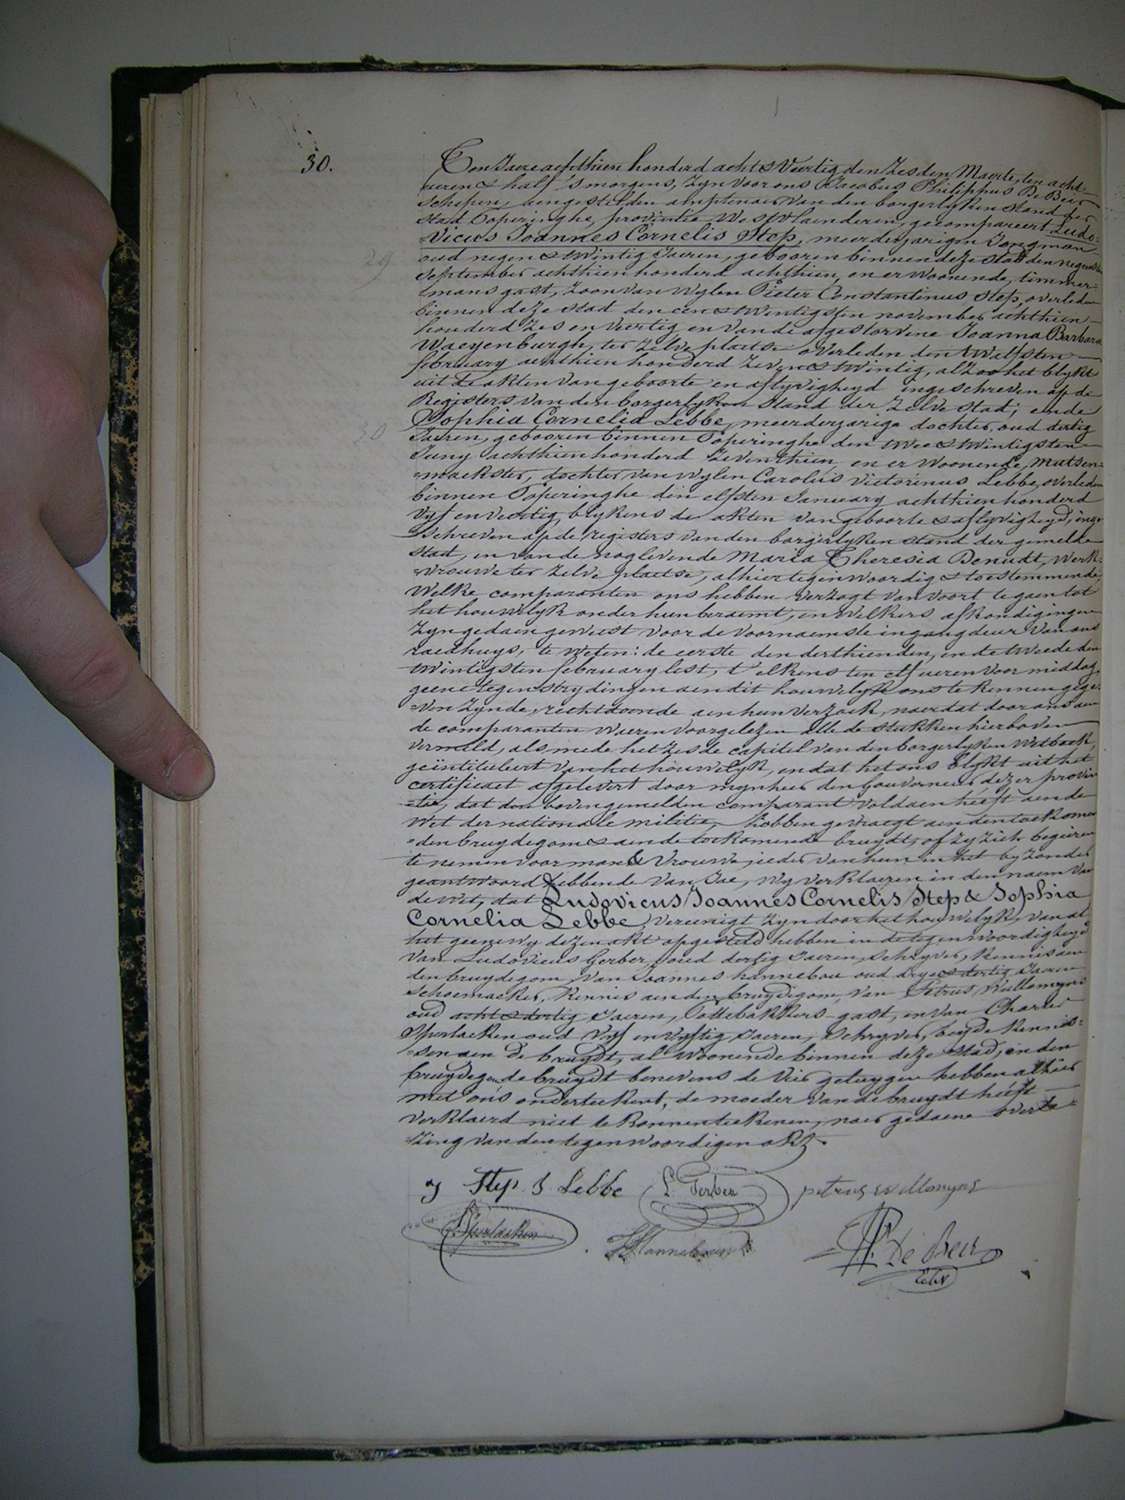 30.
Ten Jaere achthien honderd acht & Veertig den Zesden Maerte, ten acht
ueren & half 's morgens, Zyn voor ons Jacobus Philippus De Beir
Schepen, aengestelden amptenaer van den borgerlyken Stand der
Stad Poperinghe, provintie Westvlaenderen, gecompareert Ludo-
vicus Joannes Cornelis Stop, meerderjarigen Jongman
29
oud negen & twintig Jaeren, gebooren binnen deze Stad den negensten
September achthien honderd achthien, en er Woonende, timmer-
mans gast, Zoon van Wylen Pieter Constantinus Step, overleden
binnen deze Stad den een & twintigsten november achthien
honderd Zes en Veertig en van de afgestorvene Joanna Barbara
Waeyenburgh, ter Zelve plaetse overleden den twalfsten
february achthien honderd Zeven & twintig, al Zoo het blykt
uit de akten van geboorte en aflyvigheyd ingeschreven op de
Registers van den borgerlyken Stand der Zelve Stad; ende
Sophia Cornelia Lebbe, meerderjarige dochter, oud dertig
30
Jaeren, gebooren binnen Poperinghe den twee & twintigsten
Juny achthien honderd Zeventhien, en er Woonende, mutsen-
maekster, dochter van Wylen Carolus Victorinus Lebbe, overleden
binnen Poperinghe den elfsten January achthien honderd
Vyf en Veertig, blykens de akten van geboorte & aflyvigheyd, inge-
schreven op de registers van den borgerlyken stand der gemelde
stad, en van de nog levende Maria Theresia Denudt, Werk-
vrouwe ter Zelve plaetse, alhier tegenwoordig & toestemmende,
Welke comparanten ons hebben verzogt van voort te gaen tot
het houwelyk onder hun beraemt, en Welkers afkondigingen
Zyn gedaen geweest voor de voornaemste ingangdeur van ons
raedhuys, te Weten: de eerste den derthienden, en de tweede den
twintigsten february lest, t' elkens ten elf ueren voor middag
geene tegenstrydingen aen dit houwelyk ons te kennen gege-
ven Zynde, rechtdoende aen hun verzoek, naer dat door ons aen
de comparanten Waeren voorgelezen alle de stukken hierboven
vermeld, als mede het zesde capitel van den borgerlyken Wetboek,
geintituleert van het houwelyk, en dat het ons blykt uit het
certificaet afgelevert door mynheer den Gouverneur dezer provin-
tie, dat den bovengemelden comparant voldaen heeft aen de
Wet der nationale militie, hebben gevraegt aen den toekomen-
den bruydegom & aen de toekomende bruydt, of Zy Zich begeeren
te nemen voor man & Vrouwe, ieder van hun in het byzonder
geantwoord hebbende van Jae, Wy verklaeren in den naem van
de Wet, dat Ludovicus Joannes Cornelis Step & Sophia
Cornelia Lebbe vereenigt Zyn door het houwelyk, van al
het geene wy dezen akt opgesteld hebben in de tegenwoordigheyd
van Ludovicus Gerber, oud dertig Jaeren, Schryver, Kennis aen
den bruydegom, van Joannes hannebou oud drye & dertig Jaeren
Schoemaeker, Kennis aen den bruydigom, van Petrus Willemyns
oud acht & dertig Jaeren, Pottebakkers-gast, en van Charles
Sperlaeken oud Vyf en Vyftig Jaeren, Schryver, beyde Kennis-
sen aen de bruydt, al Woonende binnen deze stad; en den
bruydegom, de bruydt benevens de Vier getuygen hebben alhier
met ons onderteekent, de moeder van de bruydt heeft
verklaerd niet te konnen teekenen, naer gedaene overle-
zing van den tegenwoordigen akt.
J Step S. Lebbe L. Gerber petrus willemyns
Sperlaeken J Hannebouw P. De Beir